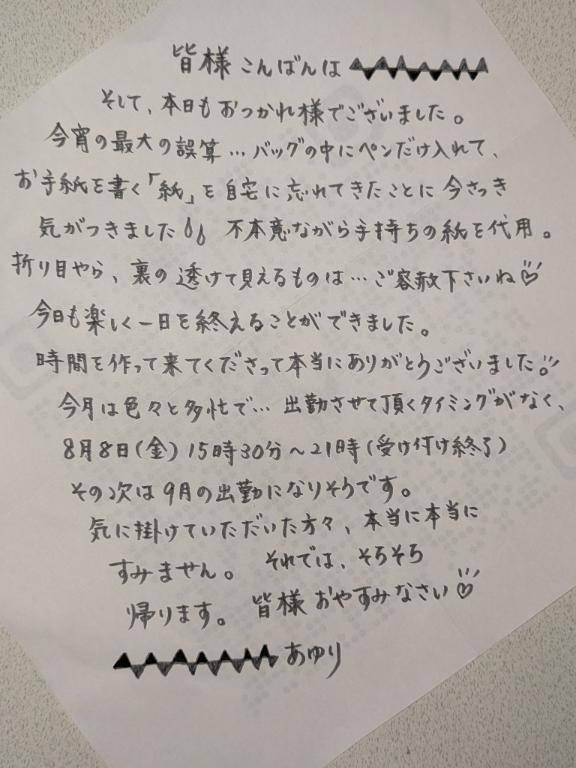 皆様こんばんは
そして、本日もおつかれ様でございました。
今宵の最大の誤算…バッグの中にペンだけ入れて、
お手紙を書く「紙」を自宅に忘れてきたことに今さっき
気がつきました 不本意ながら手持ちの紙を代用。
折り目やら、裏の透けて見えるものは…ご容赦下さいね♡
今日も楽しく一日を終えることができました。
時間を作って来てくださって本当にありがとうございました!!
今月は色々と多忙で…出勤させて頂くタイミングがなく、
8月8日(金)15時30分〜21時(受け付け終了)
その次は9月の出勤になりそうです。
気に掛けていただいた方々、本当に本当に
すみません。それでは、そろそろ
帰ります。皆様おやすみなさい♡
あゆり